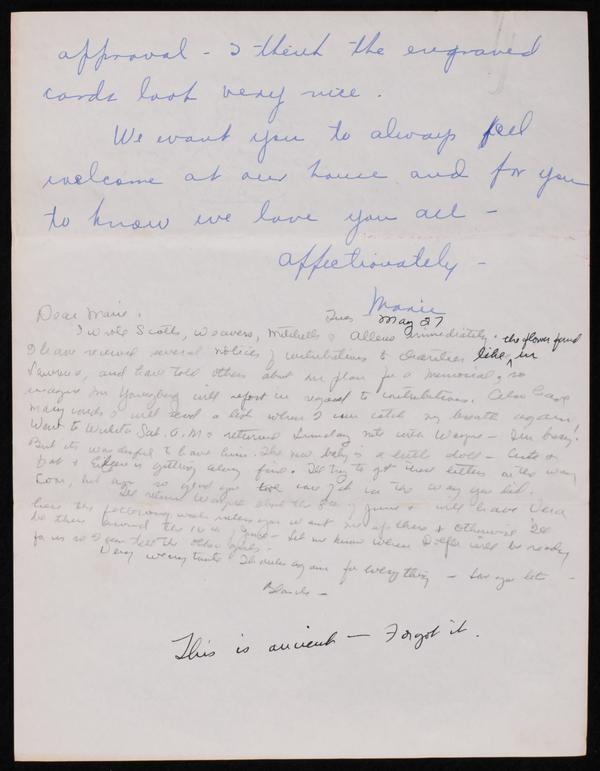 approval - I think the engraved
cards look very nice.
We want you to always feel
welcome at our house and for you
to know we love you all -
affectionately -
Marie
Dear Marie. Tues May 27
I wrote Scotts, Weavers, Mitchells & Allens immediately. the flower fund
I have received several notices of contributions to Charities like in
Lawrence, and have told others about our plan for a memorial, so
imagine Mr Youngberg will report in regard to contributions. Also have
many cards & will send a list when I can catch my breath again!
Went to Wichita Sat. A.M & returned Sunday nite with Wayne - Im busy.
But its wonderful to have him. The new baby is a little doll - Cute &
fat & Eileen is getting along fine. I'll try to get those letters on the way
Com, but am so glad you took care of it in the way you did.
I'll return Wayne about the 8th of June & will leave Vera
here the following week unless you want me up there & Otherwise I'll
be there around the 16th of June - Let me know when will be ready
for us so I can tell the other girls.
Very many thanks for everything - Love you lots -
Blanche -
This is ancient - Forgot it.